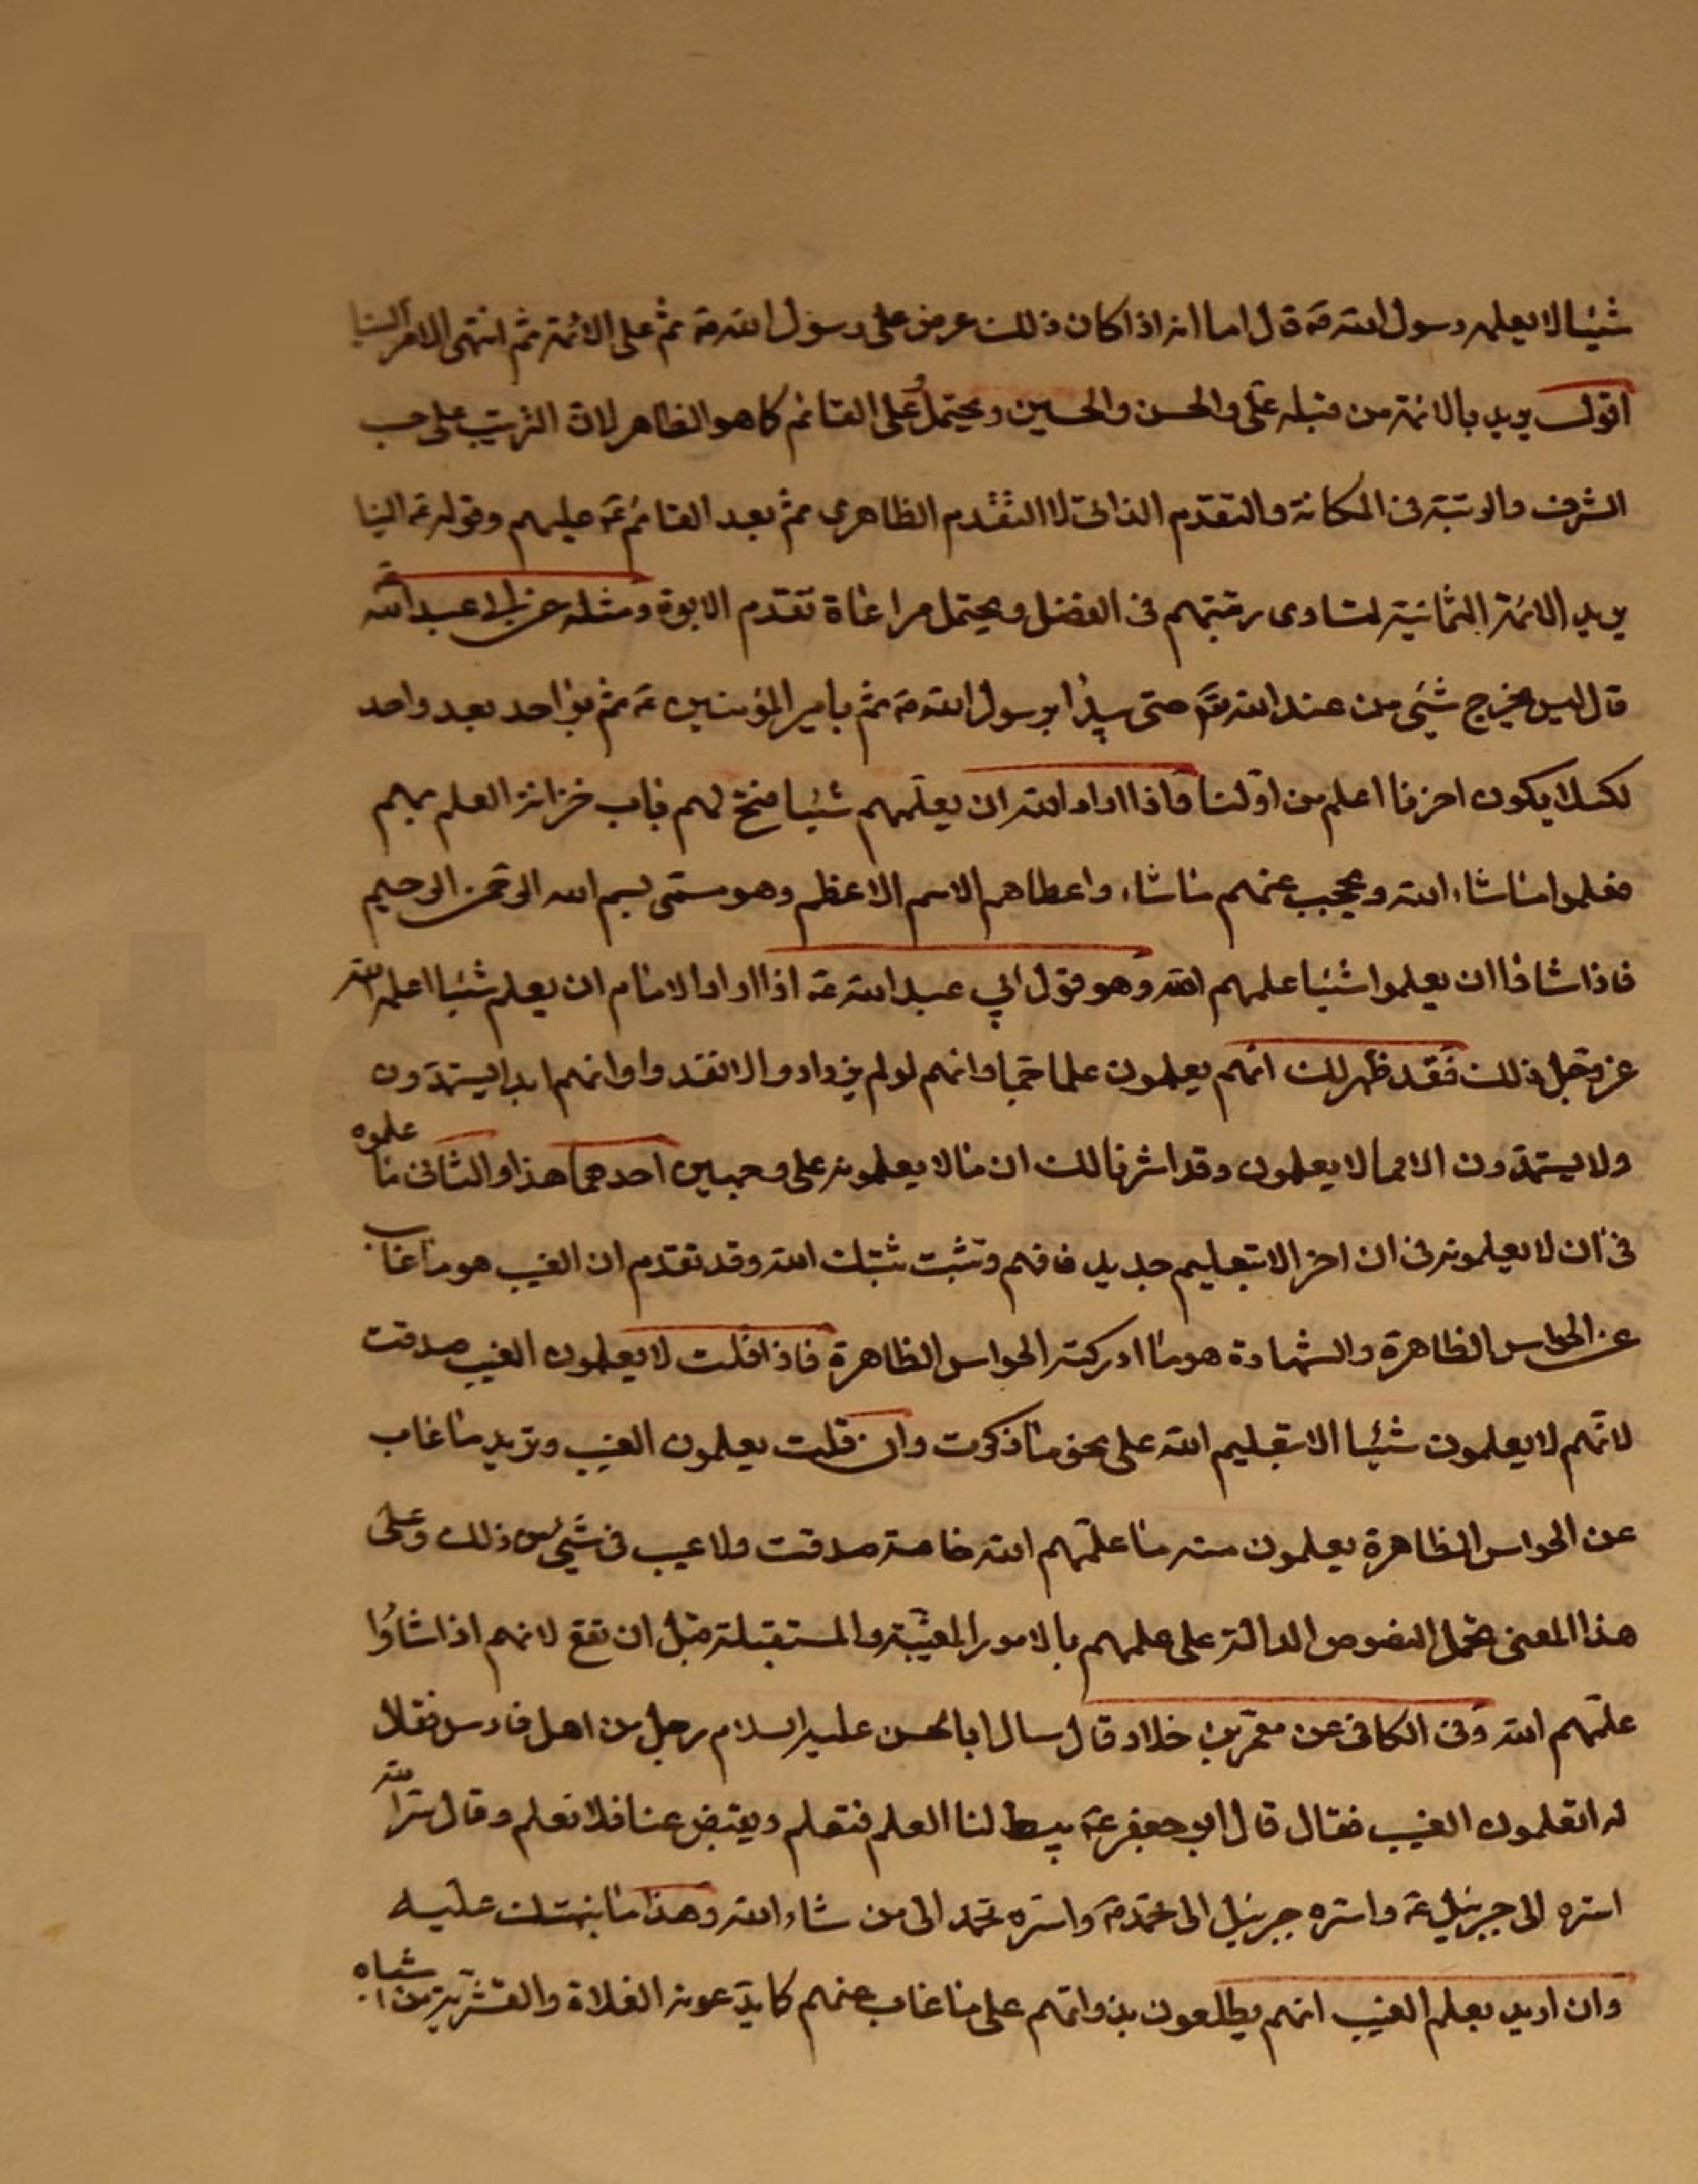 شيئا لا يعلمه رسول الله صه قال اما انه اذا كان ذلك عرض على رسول الله صه ثم على الائمة ثم انتهى الامر الينا
اقول يريد بالائمة من قبله علي والحسن والحسين ويحتمل وعلى القائم كما هو الظاهر لان الترتيب على حسب
الشرف والرتبة فى المكانة والتقدم الذاتى لا التقدم الظاهرى ثم بعد القائم عه عليهم وقوله عه الينا
يريد الائمة الثمانية لتساوى رتبتهم فى الفضل ويحتمل مراعاة تقدم الابوة ومثله عن ابى عبد الله عه
قال ليس يخرج شيئ من عند الله تعه حتى يبدأ برسول الله صه ثم بامير المؤمنين عه ثم بواحد بعد واحد
لكيلا يكون اخرنا اعلم من اولنا فاذا اراد الله ان يعلمهم شيئا فتح لهم باب خزانة العلم بهم
فعلموا ما شاء الله ويحجب عنهم ما شاء واعطاهم الاسم الاعظم وهو مسمى بسم الله الرحمن الرحيم
فاذا شاؤا ان يعلموا شيئا علمهم الله وهو قول ابي عبد الله عه اذا اراد الامام ان يعلم شيئا اعلمه الله
عز وجل ذلك فقد ظهر لك انهم يعلمون علما جما وانهم لو لم يزدادوا لانفدوا وانهم ابدا يستمدون
ولا يستمدون الا مما لا يعلمون وقد اشرنا لك ان ما لا يعلمونه على وجهين احدهما هذا والثانى ما علموه
فى ان لا يعلمونه فى ان اخر الا بتعليم جديد فافهم وتثبت ثبتك الله وقد تقدم ان الغيب هو ما غاب
عن الحواس الظاهرة والشهادة هو ما ادركته الحواس الظاهرة فاذا قلت لا يعلمون الغيب صدقت
لانهم لا يعلمون شيئا الا بتعليم الله على نحو ما ذكرت وان قلت يعلمون الغيب وتريد ما غاب
عن الحواس الظاهرة يعلمون منه ما علمهم الله خاصة صدقت ولا عيب فى شيئ من ذلك وعلى
هذا المعنى تحمل النصوص الدالة على علمهم بالامور المغيبة والمستقبلة قبل ان تقع لانهم اذا شاؤا
علمهم الله وفى الكافى عن معمر بن خلاد قال سال ابا الحسن عليه السلام رجل من اهل فارس فقال
له اتعلمون الغيب فقال قال ابو جعفر عه يبسط لنا العلم فنعلم ويقبض عنا فلا نعلم وقال سر الله
اسره الى جبرئيل عه واسره جبرئيل الى محمد صه واسره محمد الى من شاء الله وهذا ما ينبهك عليه
وان اريد بعلم الغيب انهم يطلعون بذواتهم على ما غاب عنهم كما يدعونه الغلاة والقشرية من اشباه